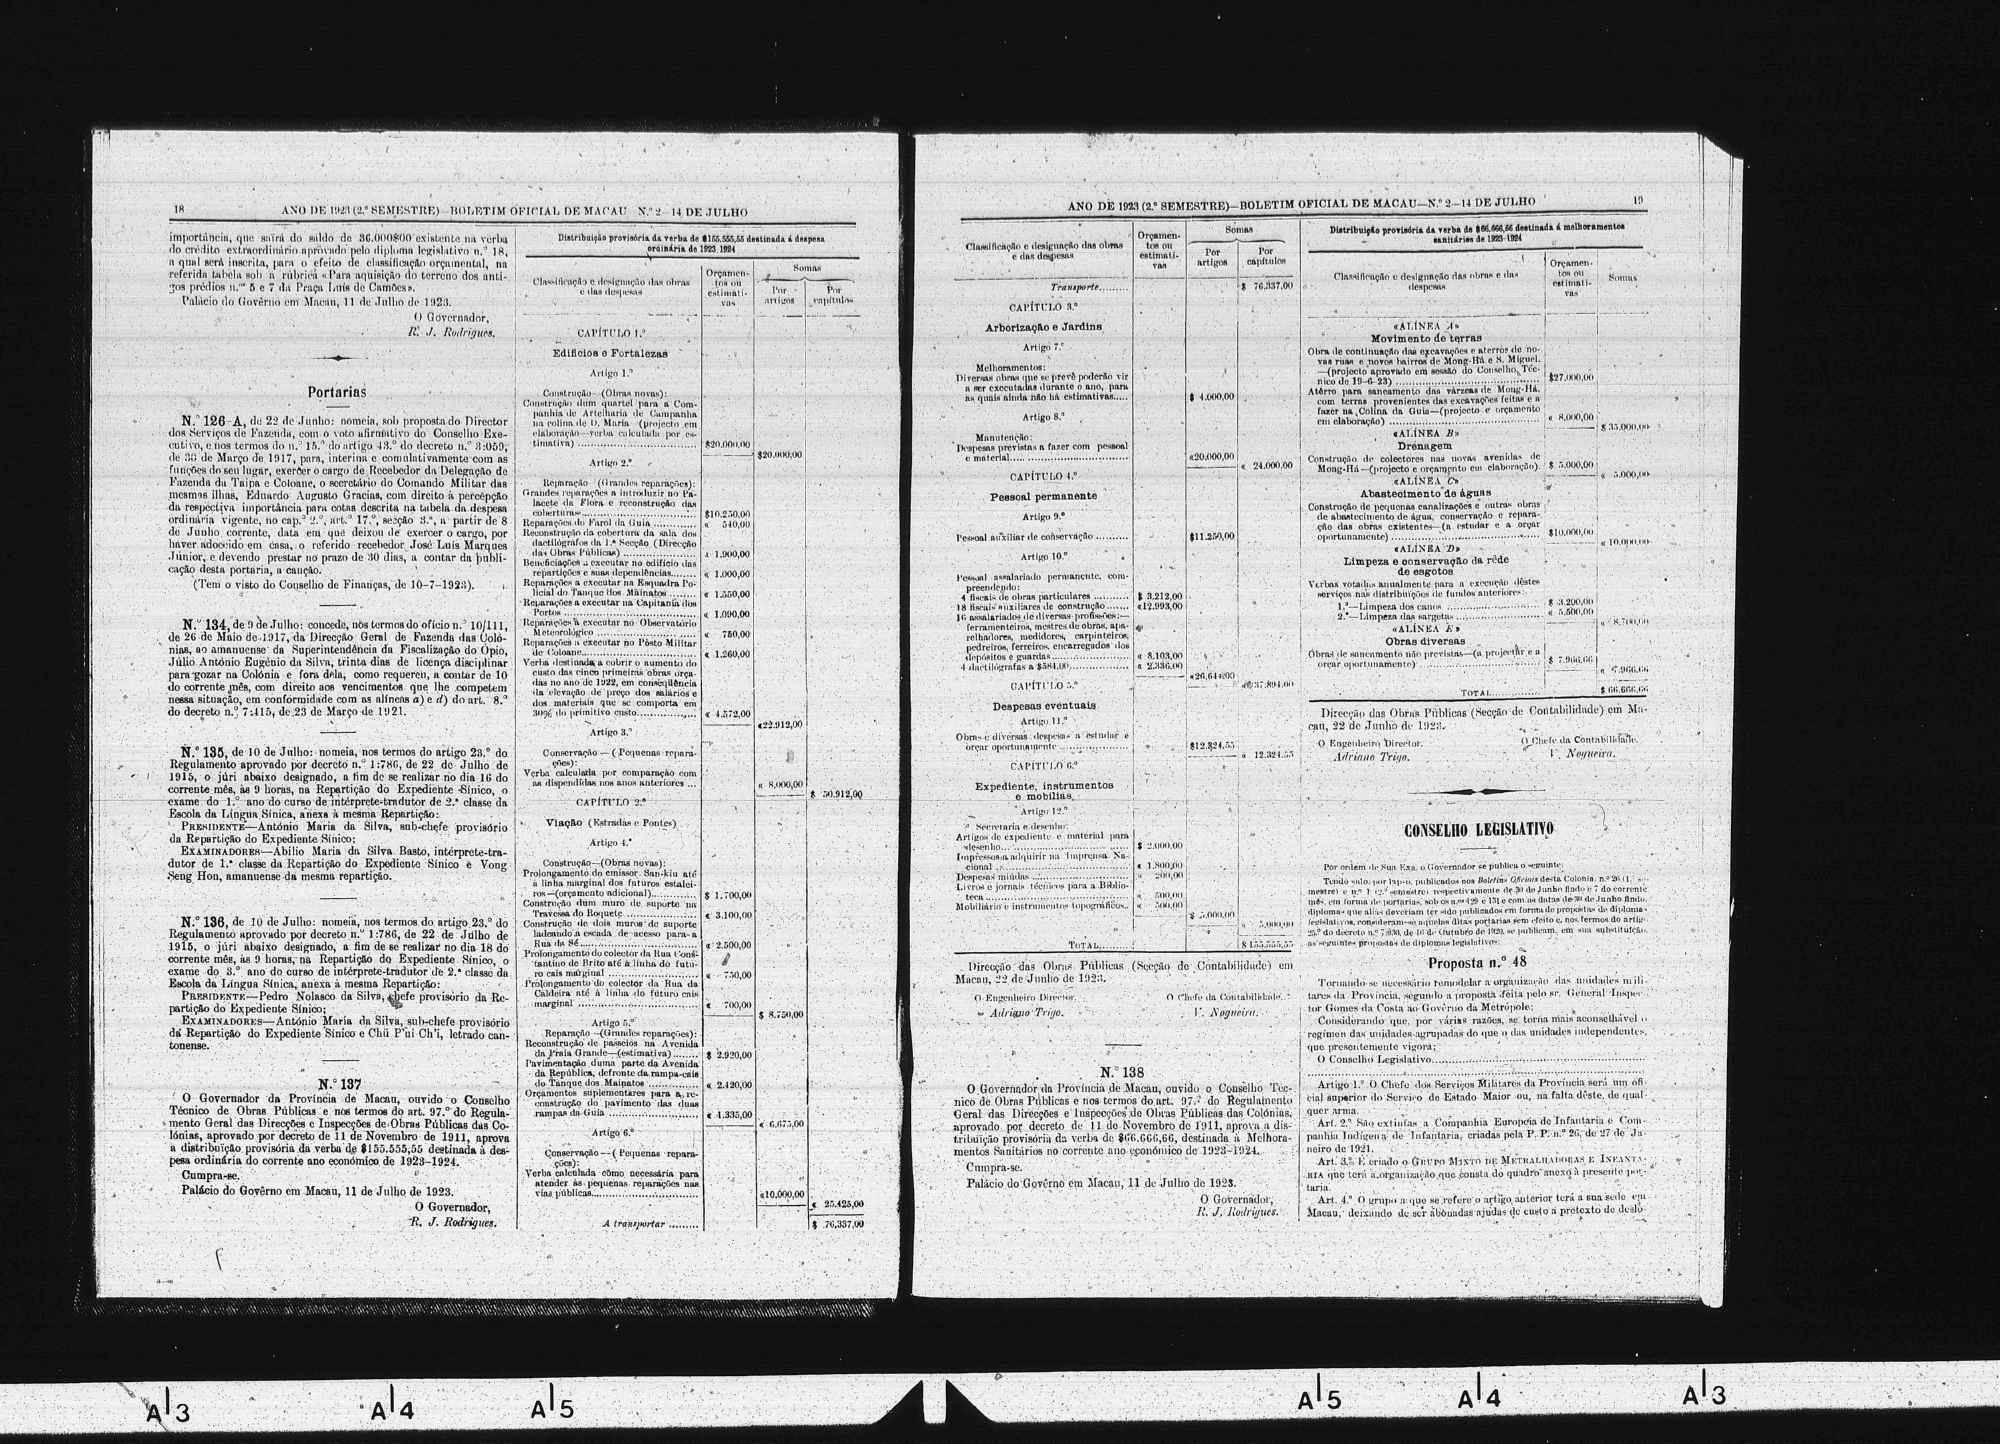 18
ANO DE 1923 (2.º SEMESTRE)—BOLETIM OFICIAL DE MACAU N.º 2—14 DE JULHO
importância, que sairá do saldo de 36.000$00 existente na verba
do crédito extraordinário aprovado pelo diploma legislativo n.º 18,
a qual será inscrita, para o efeito de classificação orçamental, na
referida tabela sob a rúbrica «Para aquisição do terreno dos anti-
gos prédios n.ᵒˢ 5 e 7 da Praça Luís de Camões».
Palácio do Govêrno em Macau, 11 de Julho de 1923.
O Governador,
R. J. Rodrigues.
Portarias
N.º 126-A, de 22 de Junho: nomeia, sob proposta do Director
dos Serviços de Fazenda, com o voto afirmativo do Conselho Exe-
cutivo, e nos termos do n.º 15.º do artigo 43.º do decreto n.º 3:059,
de 30 de Março de 1917, para, interina e comulativamente com as
funções do seu lugar, exercer o cargo de Recebedor da Delegação de
Fazenda da Taipa e Coloane, o secretário do Comando Militar das
mesmas ilhas, Eduardo Augusto Gracias, com direito à percepção
da respectiva importância para cotas descrita na tabela da despesa
ordinária vigente, no cap.º 2.º, art.º 17.º, secção 3.ª, a partir de 8
de Junho corrente, data em que deixou de exercer o cargo, por
haver adoecido em casa, o referido recebedor José Luís Marques
Júnior, e devendo prestar no prazo de 30 dias, a contar da publi-
cação desta portaria, a caução.
(Tem o visto do Conselho de Finanças, de 10-7-1923).
N.º 134, de 9 de Julho: concede, nos termos do ofício n.º 10/111,
de 26 de Maio de 1917, da Direcção Geral de Fazenda das Coló-
nias, ao amanuense da Superintendência da Fiscalização do Ópio,
Júlio António Eugénio da Silva, trinta dias de licença disciplinar
para gozar na Colónia e fora dela, como requereu, a contar de 10
do corrente mês, com direito aos vencimentos que lhe competem
nessa situação, em conformidade com as alíneas a) e d) do art. 8.º
do decreto n.º 7:415, de 23 de Março de 1921.
N.º 135, de 10 de Julho: nomeia, nos termos do artigo 23.º do
Regulamento aprovado por decreto n.º 1:786, de 22 de Julho de
1915, o júri abaixo designado, a fim de se realizar no dia 16 do
corrente mês, às 9 horas, na Repartição do Expediente Sínico, o
exame do 1.º ano do curso de intérprete-tradutor de 2.ª classe da
Escola da Língua Sínica, anexa à mesma Repartição:
PRESIDENTE—António Maria da Silva, sub-chefe provisório
da Repartição do Expediente Sínico;
EXAMINADORES—Abílio Maria da Silva Basto, intérprete-tra-
dutor de 1.ª classe da Repartição do Expediente Sínico e Vong
Seng Hon, amanuense da mesma repartição.
N.º 136, de 10 de Julho: nomeia, nos termos do artigo 23.º do
Regulamento aprovado por decreto n.º 1:786, de 22 de Julho de
1915, o júri abaixo designado, a fim de se realizar no dia 18 do
corrente mês, às 9 horas, na Repartição do Expediente Sínico, o
exame do 3.º ano do curso de intérprete-tradutor de 2.ª classe da
Escola da Língua Sínica, anexa à mesma Repartição:
PRESIDENTE—Pedro Nolasco da Silva, chefe provisório da Re-
partição do Expediente Sínico;
EXAMINADORES—António Maria da Silva, sub-chefe provisório
da Repartição do Expediente Sínico e Chü P'ui Ch'i, letrado can-
tonense.
N.º 137
O Governador da Província de Macau, ouvido o Conselho
Técnico de Obras Públicas e nos termos do art. 97.º do Regula-
mento Geral das Direcções e Inspecções de Obras Públicas das Co-
lónias, aprovado por decreto de 11 de Novembro de 1911, aprova
a distribuïção provisória da verba de $155.555,55 destinada à des-
pesa ordinária do corrente ano económico de 1923-1924.
Cumpra-se.
Palácio do Govêrno em Macau, 11 de Julho de 1923.
O Governador,
R. J. Rodrigues.
Distribuição provisória da verba de $155.555,55 destinada á despesa
ordinária de 1923 1924
Classificação e designação das obras
e das despesas
Orçamen-
tos ou
estimati-
vas
Somas
Por
artigos
Por
capítulos
CAPÍTULO 1.º
Edifícios e Fortalezas
Artigo 1.º
Construção—(Obras novas):
Construção dum quartel para a Com-
panhia de Artelharia de Campanha
na colina de D. Maria (projecto em
elaboração—verba calculada por es-
timativa) ..... $20.000,00
$20.000,00
Artigo 2.º
Reparação (Grandes reparações):
Grandes reparações a introduzir no Pa-
lacete da Flora e reconstrução das
coberturas ..... $10.250,00
Reparações do Farol da Guia ..... « 540,00
Reconstrução da cobertura da sala dos
dactilógrafos da 1.ª Secção (Direcção
das Obras Públicas) ..... « 1.900,00
Beneficiações a executar no edifício das
repartições e suas dependências ..... « 1.000,00
Reparações a executar na Esquadra Po-
licial do Tanque dos Mainatos ..... « 1.550,00
Reparações a executar na Capitania dos
Portos ..... « 1.090,00
Reparações a executar no Observatório
Meteorológico ..... « 750,00
Reparações a executar no Pôsto Militar
de Coloane ..... « 1.260,00
Verba destinada a cobrir o aumento do
custo das cinco primeiras obras orça-
das no ano de 1922, em conseqüência
da elevação de preço dos salários e
dos materiais que se comporta em
30% do primitivo custo ..... « 4.572,00
«22.912,00
Artigo 3.º
Conservação—(Pequenas repara-
ções):
Verba calculada por comparação com
as dispendidas nos anos anteriores ... « 8.000,00
$ 50.912,00
CAPÍTULO 2.º
Viação (Estradas e Pontes)
Artigo 4.º
Construção—(Obras novas):
Prolongamento do emissor San-kiu até
à linha marginal dos futuros estalei-
ros—(orçamento adicional) ..... $ 1.700,00
Construção dum muro de suporte na
Travessa do Roquete ..... « 3.100,00
Construção de dois muros de suporte
ladeando a escada de acesso para a
Rua da Sé ..... « 2.500,00
Prolongamento do colector da Rua Cons-
tantino de Brito até à linha do futu-
ro cais marginal ..... « 750,00
Prolongamento do colector da Rua da
Caldeira até à linha do futuro cais
marginal ..... « 700,00
$ 8.750,00
Artigo 5.º
Reparação—(Grandes reparações):
Reconstrução de passeios na Avenida
da Praia Grande—(estimativa) ..... $ 2.920,00
Pavimentação duma parte da Avenida
da República, defronte da rampa-cais
do Tanque dos Mainatos ..... « 2.420,00
Orçamentos suplementares para a re-
construção do pavimento das duas
rampas da Guia ..... « 1.335,00
« 6.675,00
Artigo 6.º
Conservação—(Pequenas repara-
ções):
Verba calculada como necessária para
atender às pequenas reparações nas
vias públicas ..... «10.000,00
« 25.425,00
A transportar ..... $ 76.337,00
ANO DE 1923 (2.º SEMESTRE)—BOLETIM OFICIAL DE MACAU—N.º 2—14 DE JULHO
19
Classificação e designação das obras
e das despesas
Orçamen-
tos ou
estimati-
vas
Somas
Por
artigos
Por
capítulos
Transporte ..... $ 76.337,00
CAPÍTULO 3.º
Arborização e Jardins
Artigo 7.º
Melhoramentos:
Diversas obras que se prevê poderão vir
a ser executadas durante o ano, para
as quais ainda não há estimativas ..... $ 4.000,00
Artigo 8.º
Manutenção:
Despesas previstas a fazer com pessoal
e material ..... «20.000,00
« 24.000.00
CAPÍTULO 4.º
Pessoal permanente
Artigo 9.º
Pessoal auxiliar de conservação ..... $11.250,00
Artigo 10.º
Pessoal assalariado permanente, com-
preendendo:
4 fiscais de obras particulares ..... $ 3.212,00
18 fiscais auxiliares de construção ..... «12.993,00
16 assalariados de diversas profissões:—
ferramenteiros, mestres de obras, apa-
relhadores, medidores, carpinteiros,
pedreiros, ferreiros, encarregados dos
depósitos e guardas ..... « 8.103,00
4 dactilógrafas a $584,00 ..... « 2.336,00
«26.644,00
« 37.894,00
CAPÍTULO 5.º
Despesas eventuais
Artigo 11.º
Obras e diversas despesas a estudar e
orçar oportunamente ..... $12.324,55
« 12.324,55
CAPÍTULO 6.º
Expediente, instrumentos
e mobílias
Artigo 12.º
Secretaria e desenho:
Artigos de expediente e material para
desenho ..... $ 2.000,00
Impressos a adquirir na Imprensa Na-
cional ..... « 1.800,00
Despesas miúdas ..... « 200,00
Livros e jornais técnicos para a Biblio-
teca ..... « 500,00
Mobiliário e instrumentos topográficos .. « 500,00
$ 5.000,00
« 5.000,00
TOTAL ..... $ 155.555,55
Direcção das Obras Públicas (Secção de Contabilidade) em
Macau, 22 de Junho de 1923.
O Engenheiro Director,
Adriano Trigo.
O Chefe da Contabilidade,
V. Nogueira.
N.º 138
O Governador da Província de Macau, ouvido o Conselho Téc-
nico de Obras Públicas e nos termos do art. 97.º do Regulamento
Geral das Direcções e Inspecções de Obras Públicas das Colónias,
aprovado por decreto de 11 de Novembro de 1911, aprova a dis-
tribuïção provisória da verba de $66.666,66, destinada a Melhora-
mentos Sanitários no corrente ano económico de 1923-1924.
Cumpra-se.
Palácio do Govêrno em Macau, 11 de Julho de 1923.
O Governador,
R. J. Rodrigues.
Distribuïção provisória da verba de $66.666,66 destinada á melhoramentos
sanitários de 1923-1924
Classificação e designação das obras e das
despesas
Orçamen-
tos ou
estimati-
vas
Somas
«ALÍNEA A»
Movimento de terras
Obra de continuação das excavações e aterros de no-
vas ruas e novos bairros de Mong-Há e S. Miguel.
—(projecto aprovado em sessão do Conselho Téc-
nico de 19-6-23) ..... $27.000,00
Atêrro para saneamento das várzeas de Mong-Há,
com terras provenientes das excavações feitas e a
fazer na Colina da Guia—(projecto e orçamento
em elaboração) ..... « 8.000,00
$ 35.000,00
«ALÍNEA B»
Drenagem
Construção de colectores nas novas avenidas de
Mong-Há—(projecto e orçamento em elaboração). $ 5.000,00
« 5.000,00
«ALÍNEA C»
Abastecimento de águas
Construção de pequenas canalizações e outras obras
de abastecimento de água, conservação e repara-
ção das obras existentes—(a estudar e a orçar
oportunamente) ..... $10.000,00
« 10.000,00
«ALÍNEA D»
Limpeza e conservação da rêde
de esgotos
Verbas votadas anualmente para a execução dêstes
serviços nas distribuïções de fundos anteriores:
1.ª—Limpeza dos canos ..... $ 3.200,00
2.ª—Limpeza das sargetas ..... « 5.500,00
« 8.700,00
«ALÍNEA E»
Obras diversas
Obras de saneamento não previstas—(a projectar e a
orçar oportunamente) ..... $ 7.966,66
« 7.966,66
TOTAL ..... $ 66.666,66
Direcção das Obras Públicas (Secção de Contabilidade) em Ma-
cau, 22 de Junho de 1923.
O Engenheiro Director.
Adriano Trigo.
O Chefe da Contabilidade.
V. Nogueira.
CONSELHO LEGISLATIVO
Por ordem de Sua Exa. o Governador se publica o seguinte:
Tendo sido, por lapso, publicados nos Boletins Oficiais desta Colónia, n.º 26 (1.º se-
mestre) e n.º 1 (2.º semestre) respectivamente de 30 de Junho findo e 7 do corrente
mês, em forma de portarias, sob os n.ᵒˢ 129 e 131 e com as datas de 30 de Junho findo,
diplomas que aliás deveriam ter sido publicados em forma de propostas de diplomas
legislativos, consideram-se aquelas ditas portarias sem efeito e, nos termos do artigo
25.º do decreto n.º 7:030, de 16 de Outubro de 1920, se publicam, em sua substituïção,
as seguintes propostas de diplomas legislativos:
Proposta n.º 48
Tornando-se necessário remodelar a organização das unidades mili-
tares da Província, segundo a proposta feita pelo sr. General Inspec-
tor Gomes da Costa ao Govêrno da Metrópole;
Considerando que, por várias razões, se torna mais aconselhável o
regímen das unidades agrupadas do que o das unidades independentes,
que presentemente vigora;
O Conselho Legislativo.....
Artigo 1.º O Chefe dos Serviços Militares da Província será um ofi-
cial superior do Serviço de Estado Maior ou, na falta dêste, de qual-
quer arma.
Art. 2.º São extintas a Companhia Europeia de Infantaria e Com-
panhia Indígena de Infantaria, criadas pela P. P. n.º 26, de 27 de Ja-
neiro de 1921.
Art. 3.º É criado o GRUPO MIXTO DE METRALHADORAS E INFANTA-
RIA que terá a organização que consta do quadro anexo à presente por-
taria.
Art. 4.º O grupo a que se refere o artigo anterior terá a sua sede em
Macau, deixando de ser abonadas ajudas de custo a pretexto de deslo-
A 3
A 4
A 5
A 5
A 4
A 3